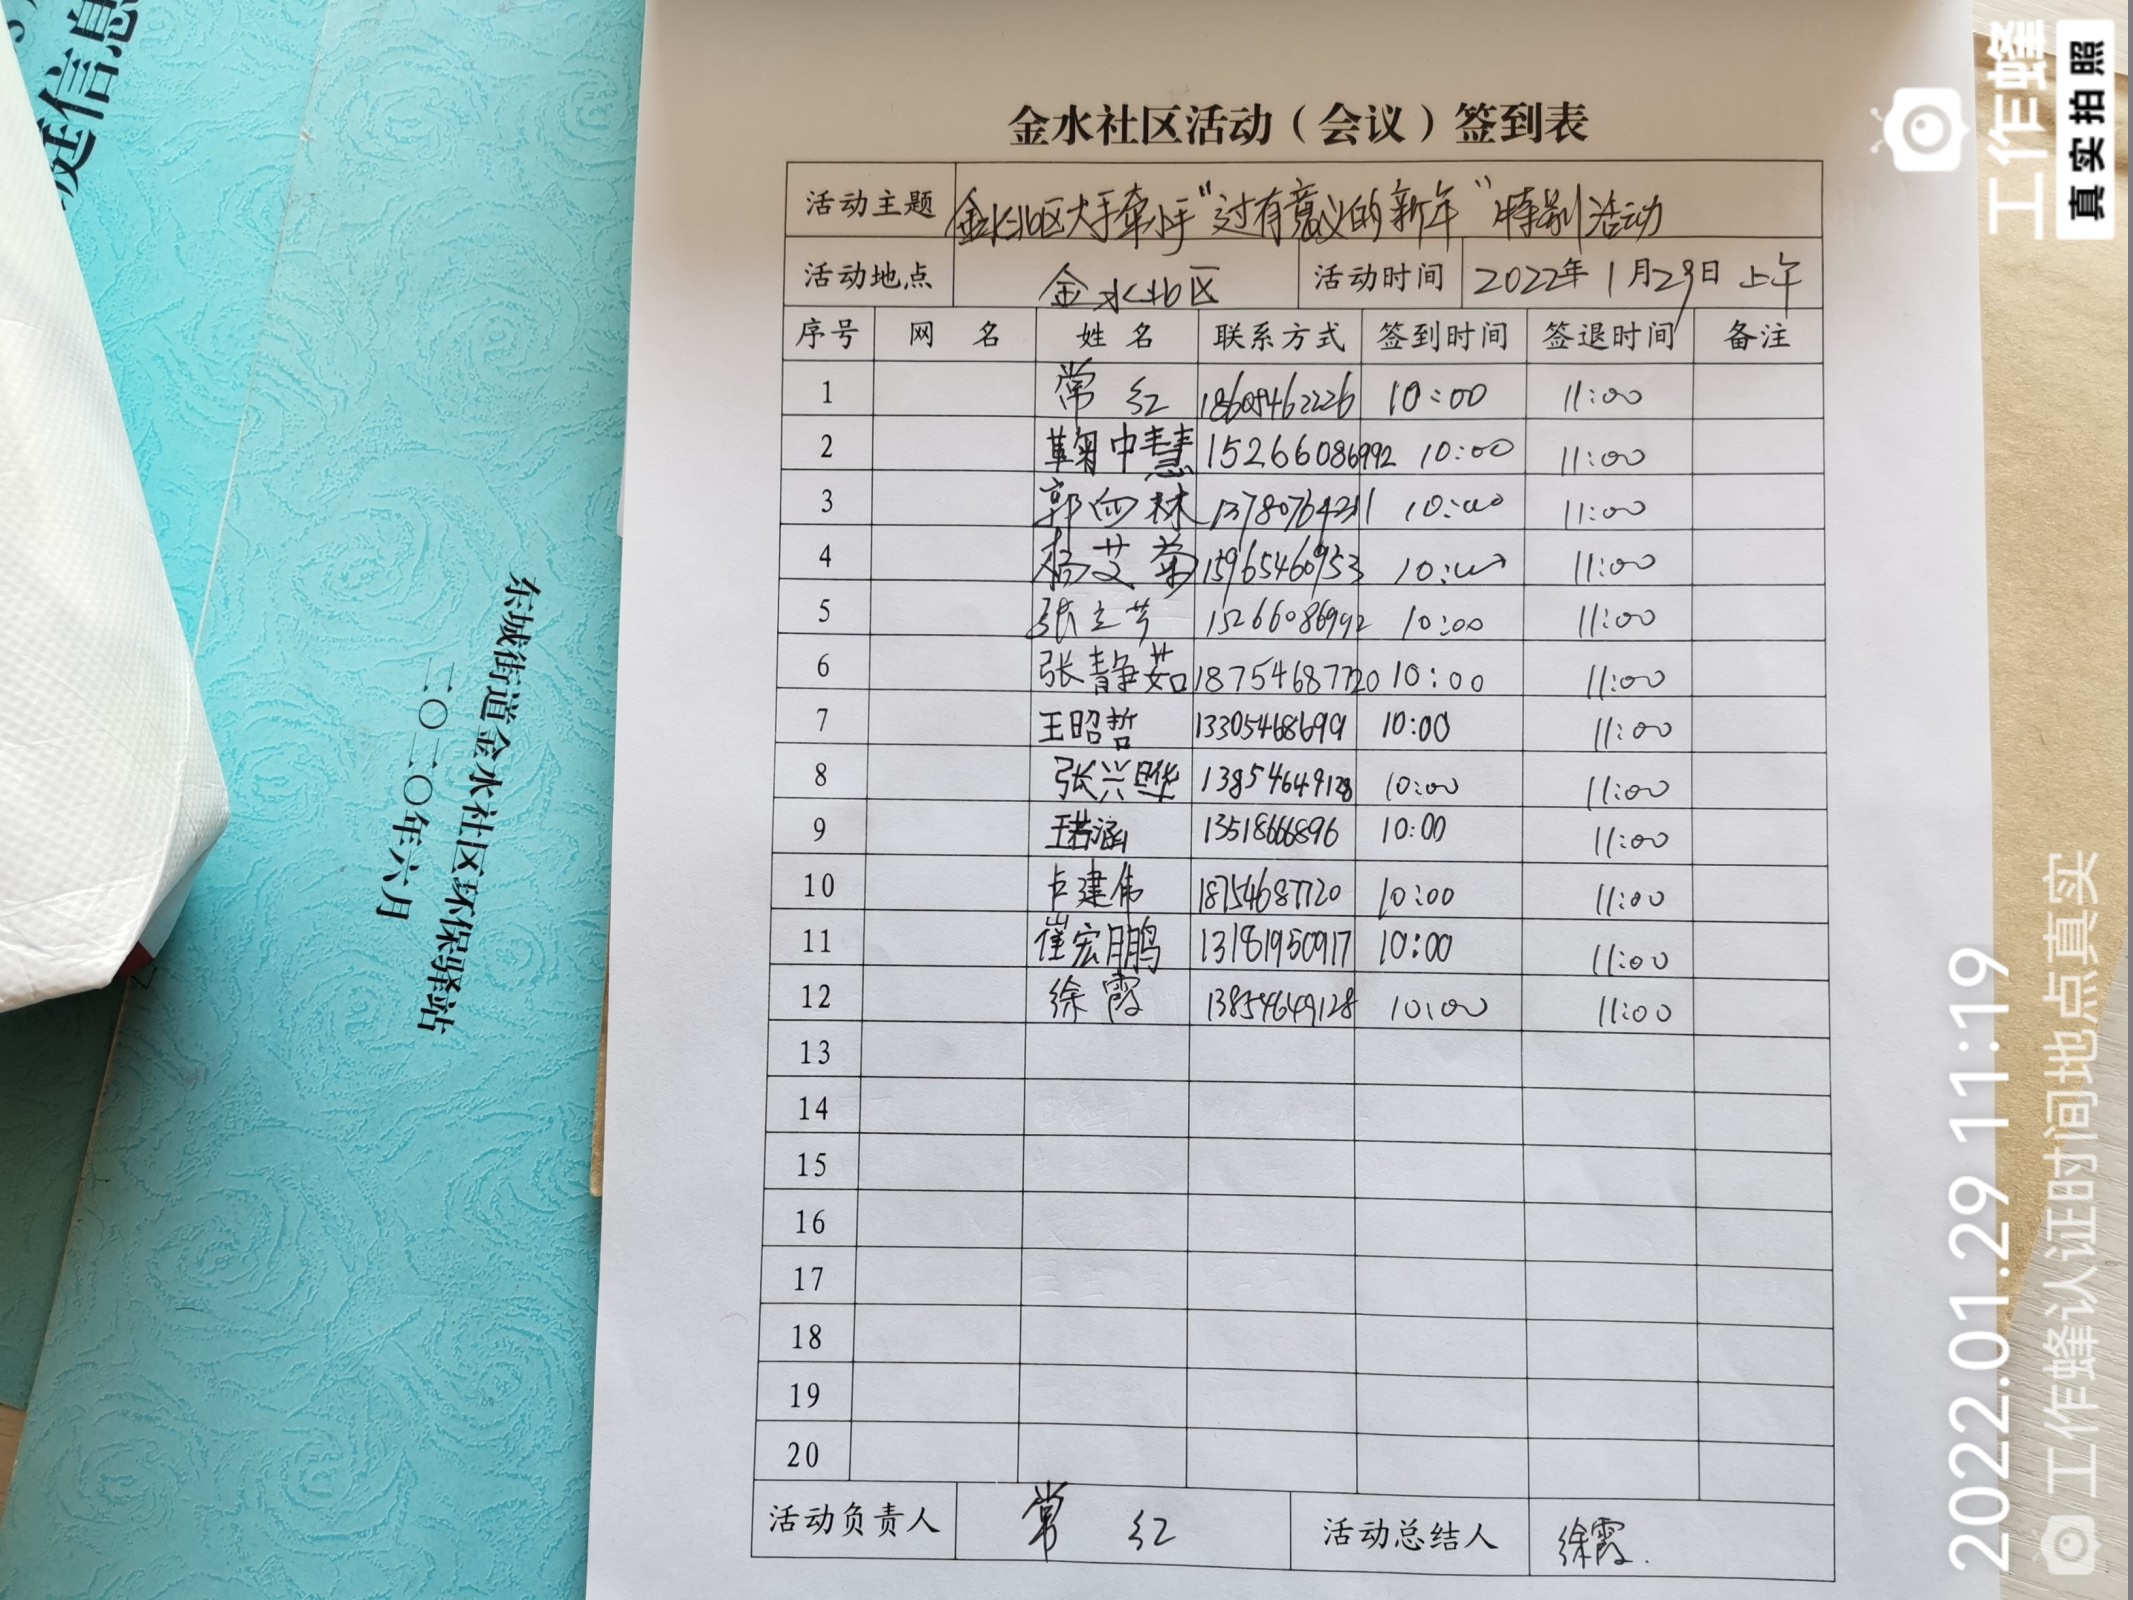 金水社区活动（会议）签到表
活动主题 金水社区大手牵小手"过有意义的新年"特别活动
活动地点 金水社区 活动时间 2022年1月29日上午
序号 网 名 姓 名 联系方式 签到时间 签退时间 备注
1 常红 18605462226 10:00 11:00
2 鞠中慧 15266086992 10:00 11:00
3 郭向林 13780764211 10:00 11:00
4 杨艾菊 15965460953 10:00 11:00
5 张立芳 15266086992 10:00 11:00
6 张静茹 18754687720 10:00 11:00
7 王昭哲 13305468699 10:00 11:00
8 张兴晔 13854649128 10:00 11:00
9 王若涵 13518666896 10:00 11:00
10 卢建伟 18754687720 10:00 11:00
11 崔宏鹏 13181950917 10:00 11:00
12 徐霞 13854649128 10:00 11:00
13
14
15
16
17
18
19
20
活动负责人 常红 活动总结人 徐霞.
庭信息
东城街道金水社区环保驿站
二〇二〇年六月
工作蜂
真实拍照
2022.01.29 11:19
工作蜂认证时间地点真实